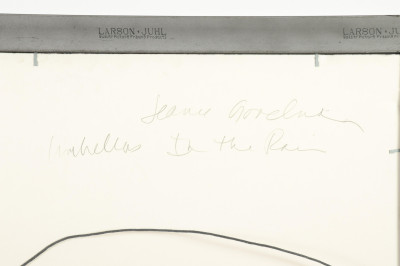 LARSON·JUHL LARSON·JUHL
Jeanie Goodman
Umbrellas In the Rain